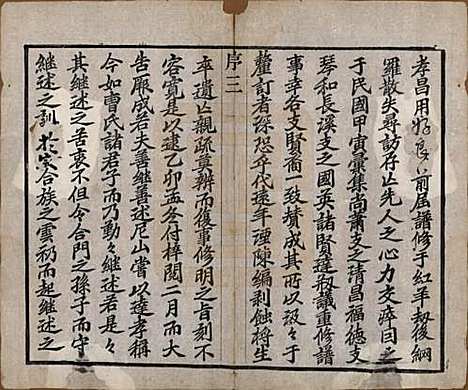 孝昌用好良前屆譜修于紅羊刼後網
羅散失尋訪存亡先人之心力交瘁因之
于民國甲寅彙集尚蕭支之清昌福德支
琴和長溪支之國英諸賢遂瓶議重修譜
事幸各支賢裔一致贊成其所以汲々于
釐訂者深恐年代遠年湮陳編剥蝕將生
序三
率遺亡親疏莫辨而復事修明之旨刻不
容寬是以逮乙卯孟冬付梓閲二月而大
告厥成若夫善繼善述尼山嘗以達孝稱
今如曹氏諸君子而乃勤々繼述若是々
其繼述之苦衷不但令合門之孫子而守
繼述之訓於家合族之雲礽而起繼述之